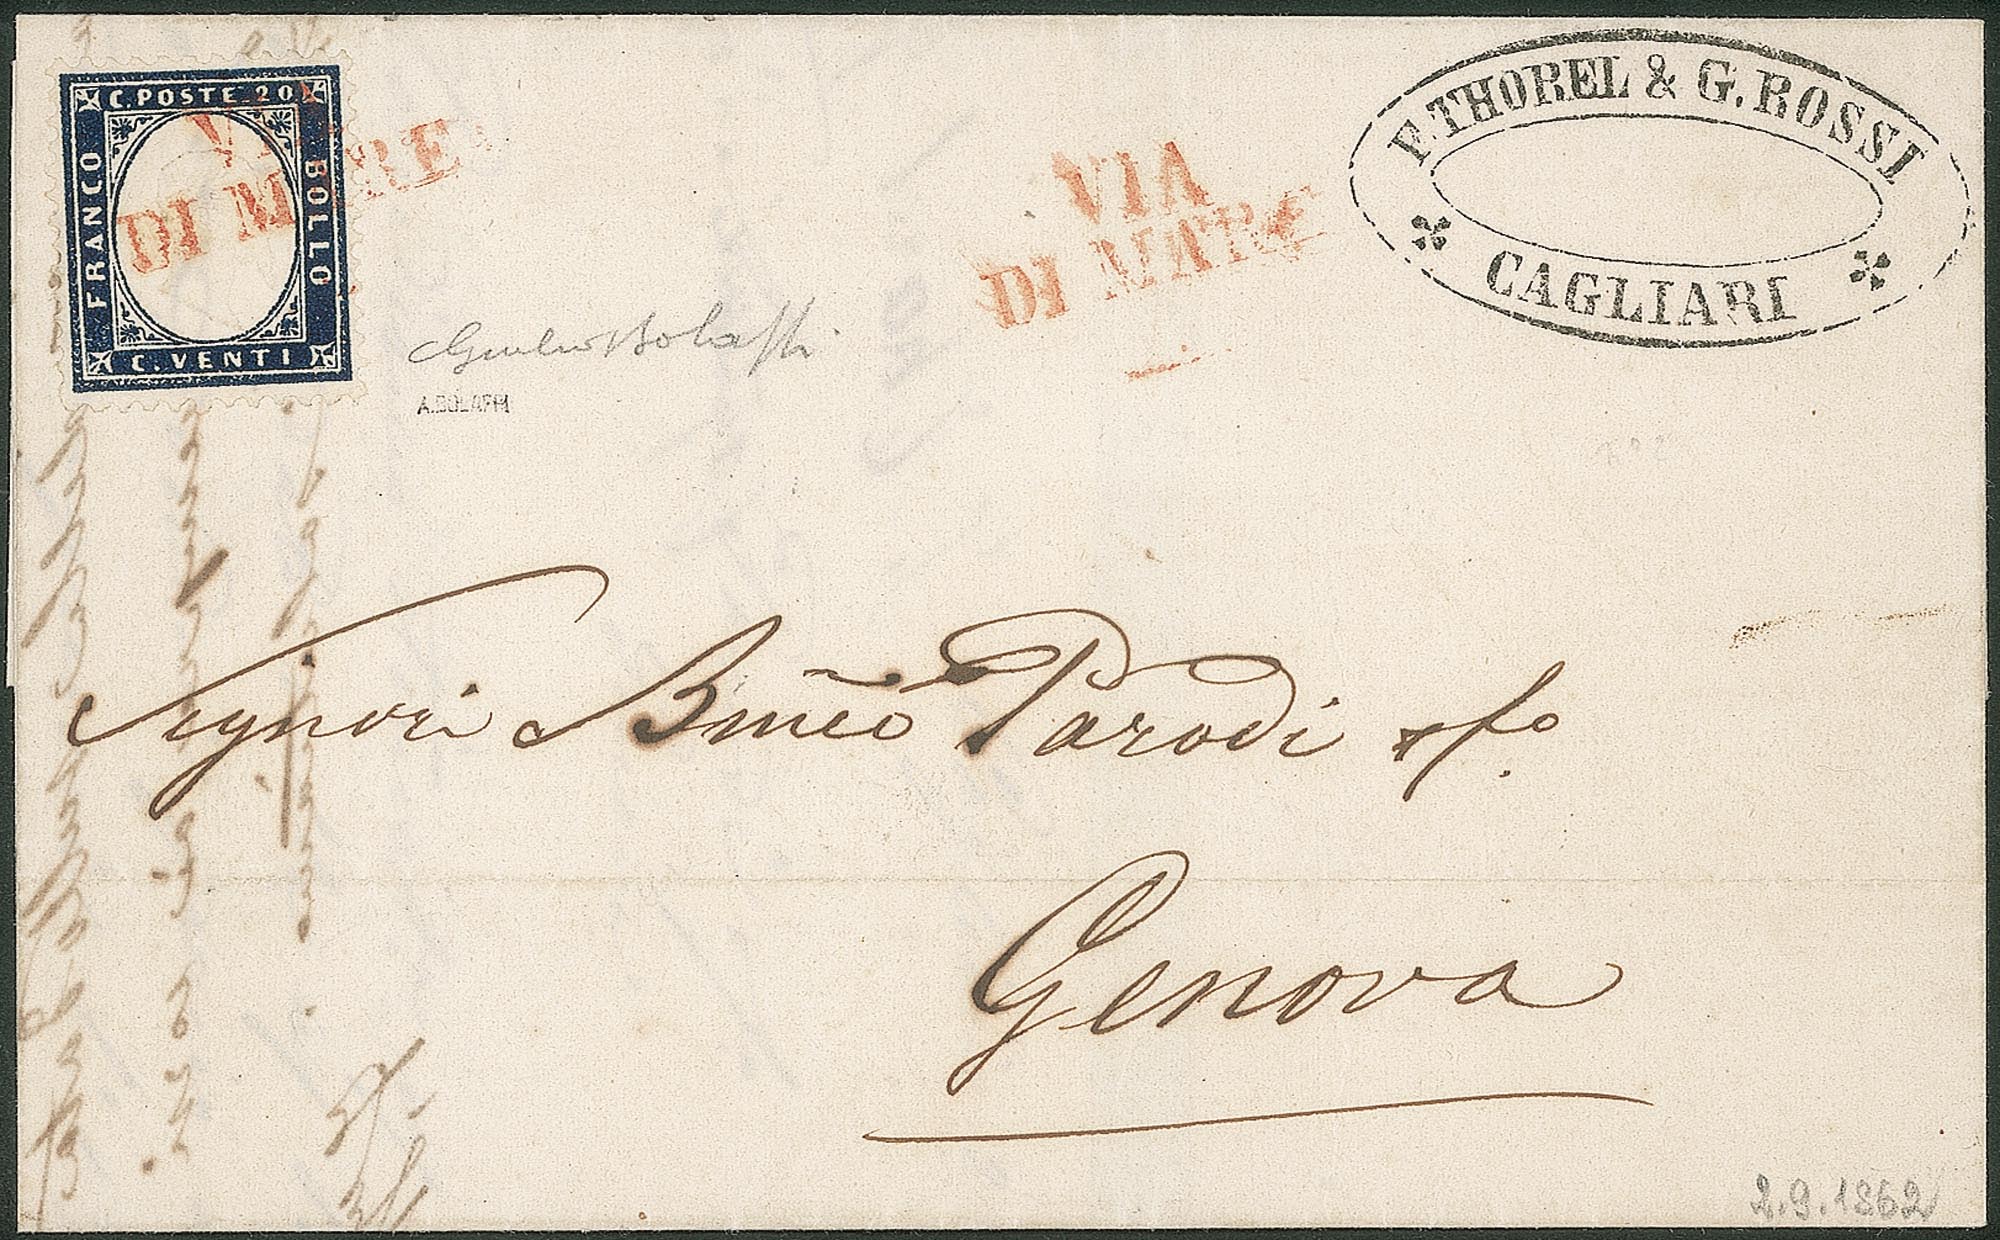 C. POSTE 20
FRANCO
BOLLO
C. VENTI
VIA
DI MARE
VIA
DI MARE
F. THOREL & G. ROSSI
CAGLIARI
Giulio Bolaffi
A. BOLAFFI
Signori Bmeo Parodi
Genova
2.9.1862